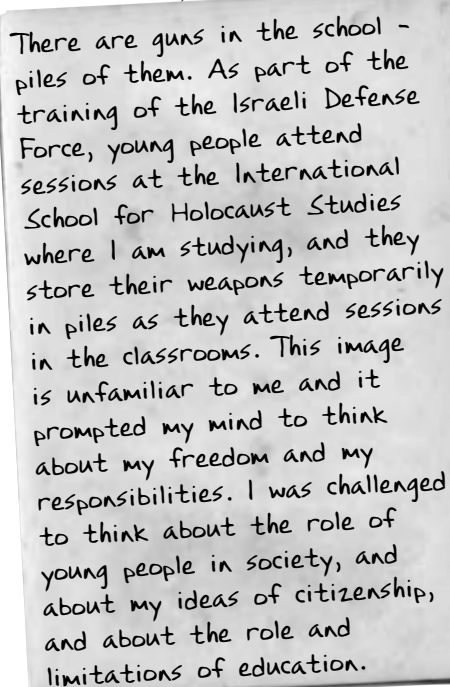 There are guns in the school -
piles of them. As part of the
training of the Israeli Defense
Force, young people attend
sessions at the International
School for Holocaust Studies
where I am studying, and they
store their weapons temporarily
in piles as they attend sessions
in the classrooms. This image
is unfamiliar to me and it
prompted my mind to think
about my freedom and my
responsibilities. I was challenged
to think about the role of
young people in society, and
about my ideas of citizenship,
and about the role and
limitations of education.